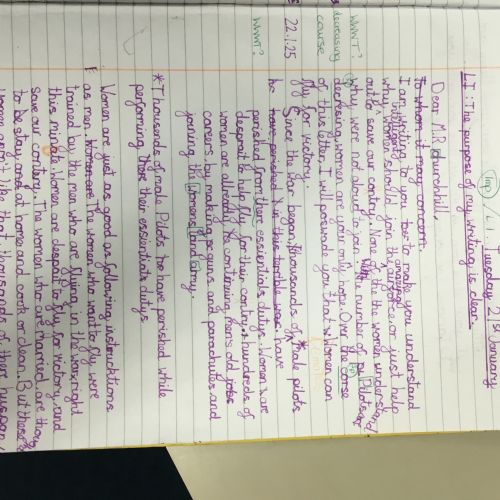 Tuesday 21st January
L.I: The purpose of my writing is clear.
Imp
Dear M.R churchill,
To whom it may concern
I am writing to you too to make you understand
why women should join the airforce or just help
out to save our contry. Now with the women understand
WWNT? why were not aloud to join the number of Pilots are
decreasing decreasing, women are your only hope. Over the corse
course of this letter, I will peswade you that Women can
fly for victory.
22.1.25 Since the war began, thousands of male pilots
have perished in this terrible war have
WWNT? perished from their essentials dutys. Women are
desprat to help fly for their contry. hundreds of
women are allready the continuing mens old jobs
careers by making guns and parachutes and
joining the Womens land army.
*Thousands of male Pilots have perished while
performing their essentials dutys
Women are just as good as following instructions
as men. The women who want to fly were
trained by the men who are flying in the war right
this minute. Women are desparate to fly for victory and
save our contry. The women who are married are
to be stay at home and cook or clean. But these
women aren't like that, thousands of their